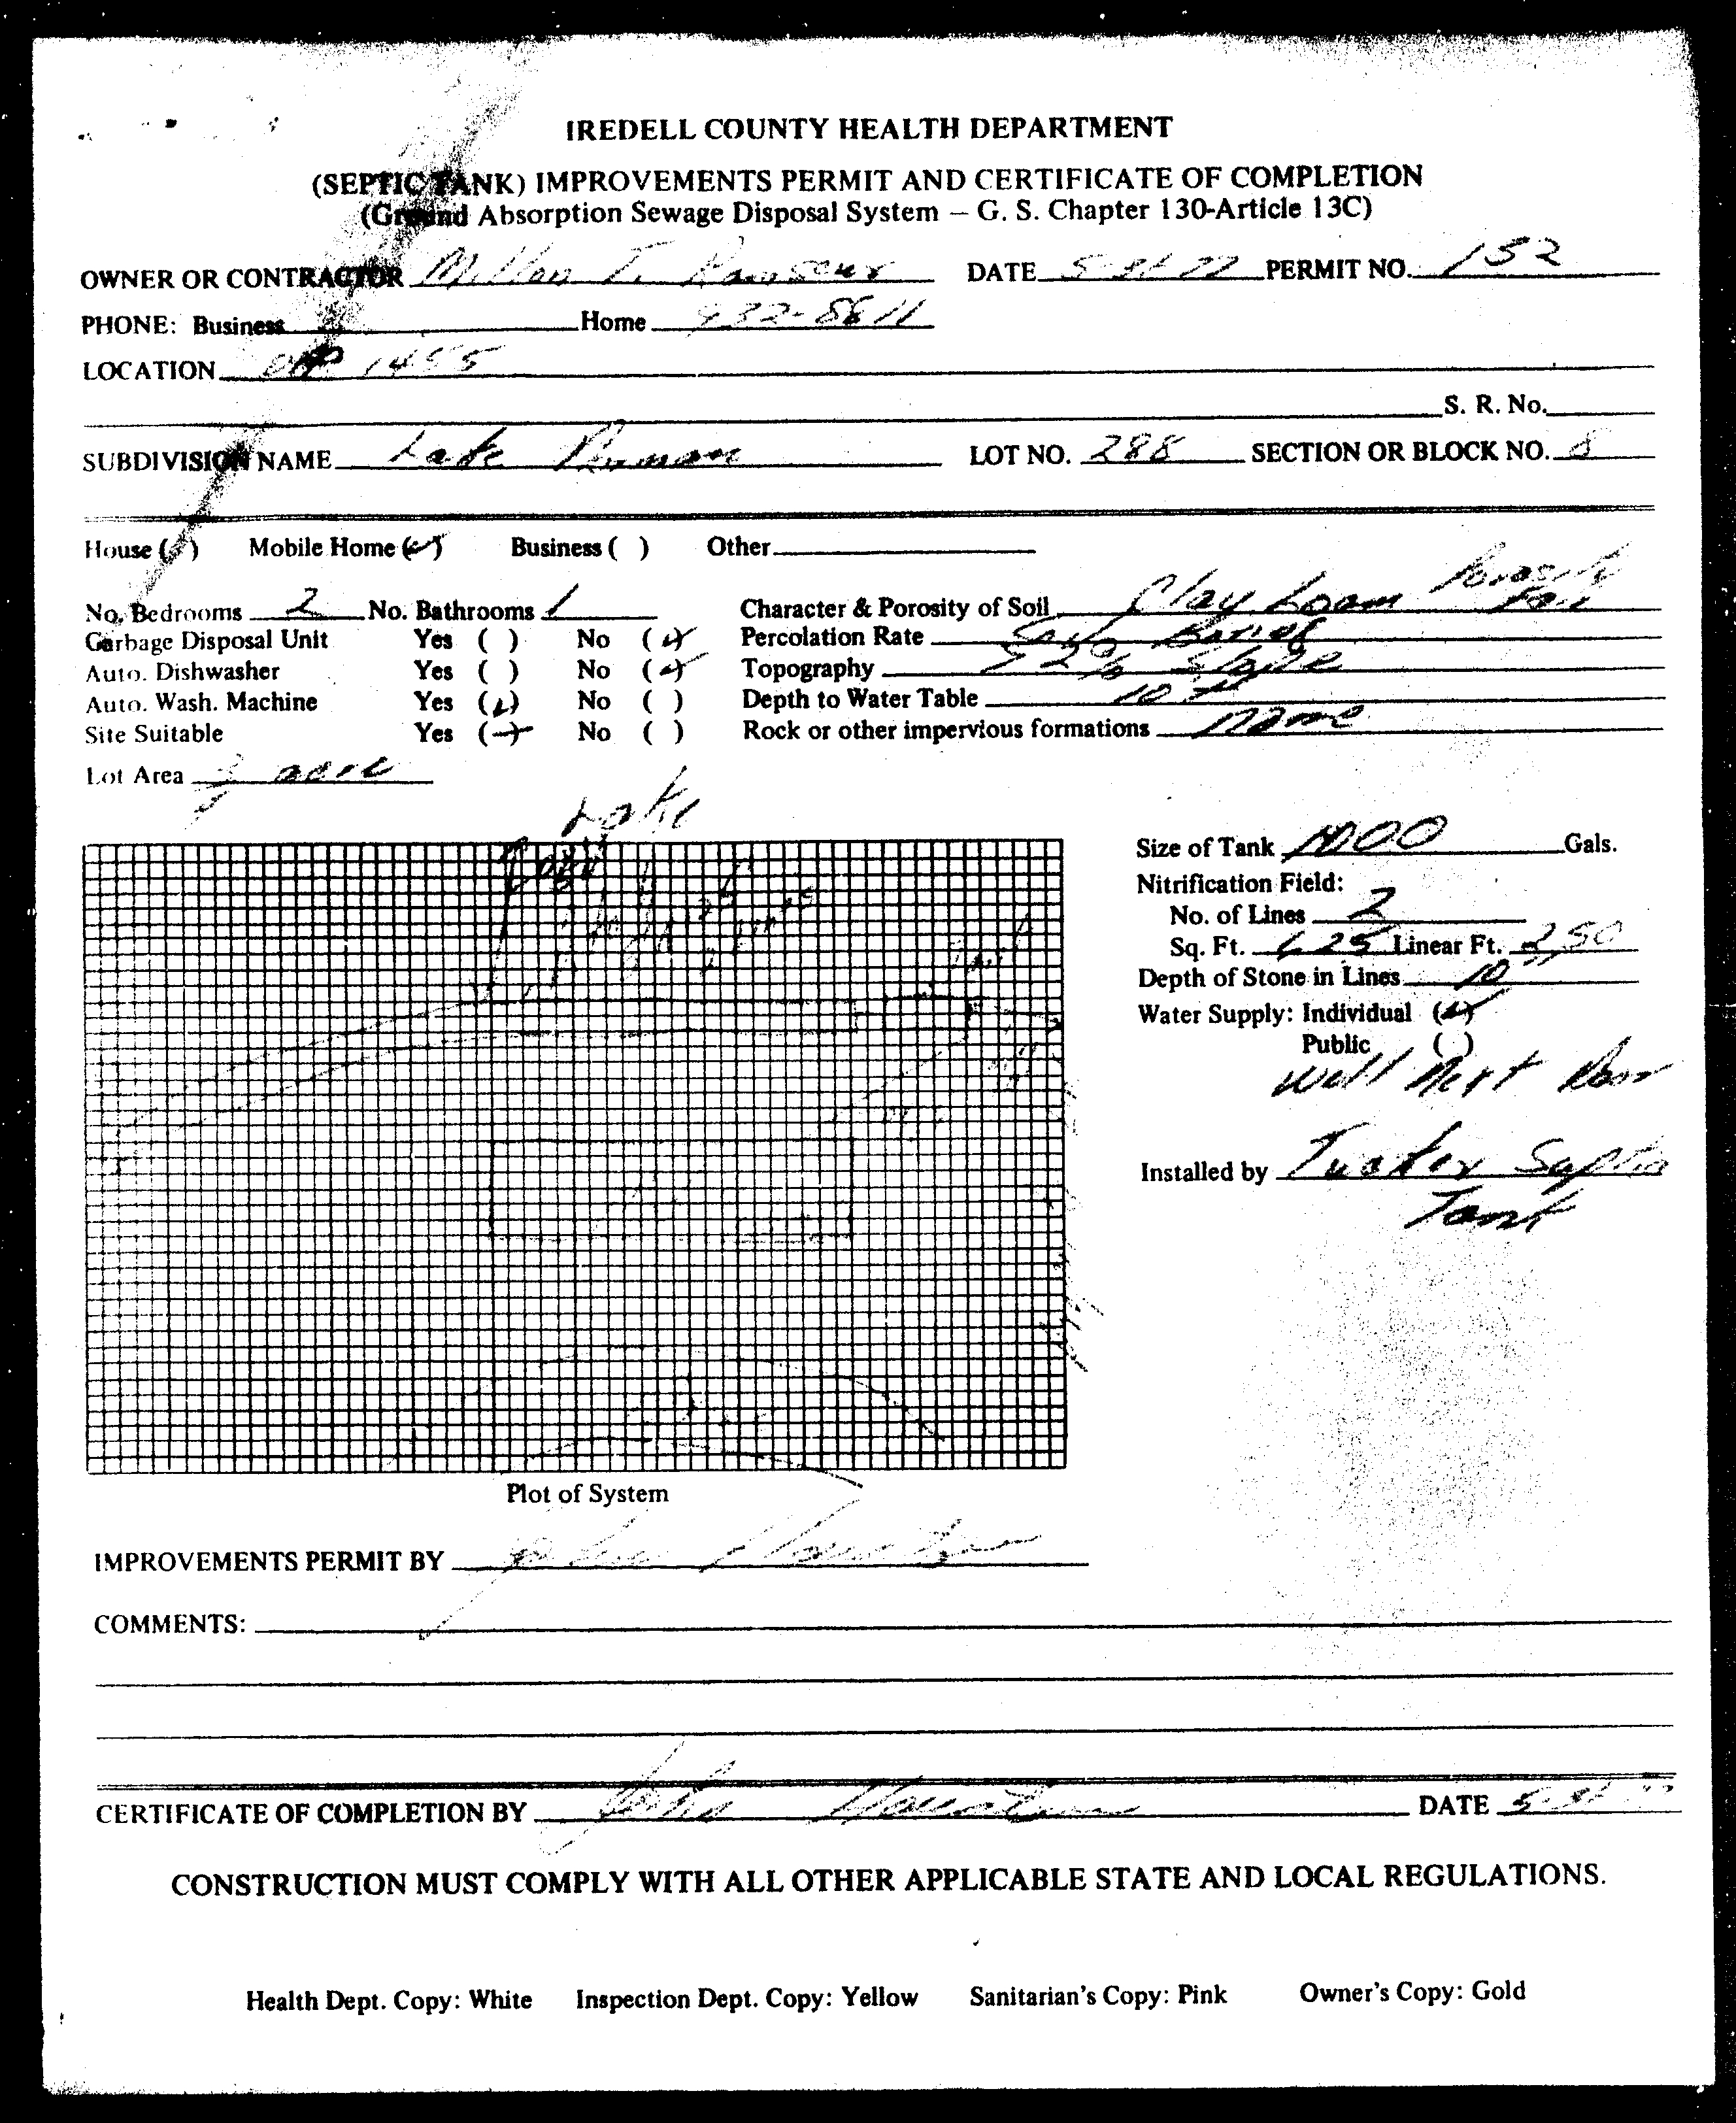 IREDELL COUNTY HEALTH DEPARTMENT
(SEPTIC TANK) IMPROVEMENTS PERMIT AND CERTIFICATE OF COMPLETION
(Ground Absorption Sewage Disposal System – G. S. Chapter 130-Article 13C)
OWNER OR CONTRACTOR T. Ramseur DATE PERMIT NO. 152
PHONE: Business Home 932-8611
LOCATION off 1455
S. R. No.
SUBDIVISION NAME Lake LOT NO. 288 SECTION OR BLOCK NO. 8
House ( ) Mobile Home (✓) Business ( ) Other
No. Bedrooms 2 No. Bathrooms 1 Character & Porosity of Soil Clay Loam Porosity Fair
Garbage Disposal Unit Yes ( ) No (✓) Percolation Rate
Auto. Dishwasher Yes ( ) No (✓) Topography Slope
Auto. Wash. Machine Yes (✓) No ( ) Depth to Water Table 10 +
Site Suitable Yes (✓) No ( ) Rock or other impervious formations none
Lot Area acre
Lake
Size of Tank 1000 Gals.
Nitrification Field:
No. of Lines 2
Sq. Ft. 625 Linear Ft. 250
Depth of Stone in Lines 10"
Water Supply: Individual (✓)
Public ( )
Well Next Door
Installed by Tucker Septic
Tank
Plot of System
IMPROVEMENTS PERMIT BY
COMMENTS:
CERTIFICATE OF COMPLETION BY John DATE
CONSTRUCTION MUST COMPLY WITH ALL OTHER APPLICABLE STATE AND LOCAL REGULATIONS.
Health Dept. Copy: White Inspection Dept. Copy: Yellow Sanitarian's Copy: Pink Owner's Copy: Gold